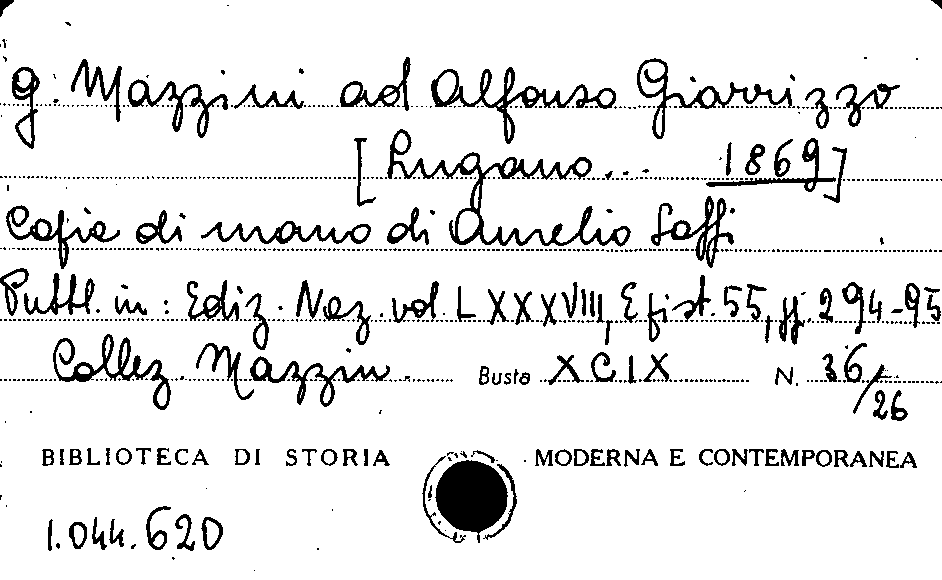 G. Mazzini ad Alfonso Giarrizzo
[Lugano... 1869]
Copia di mano di Aurelio Saffi
Pubbl. in: Ediz. Naz. vol. LXXXVIII, Epist. 55, pp. 294-95
Collez. Mazzin. Busta XCIX N. 36/26
BIBLIOTECA DI STORIA MODERNA E CONTEMPORANEA
1.044.620